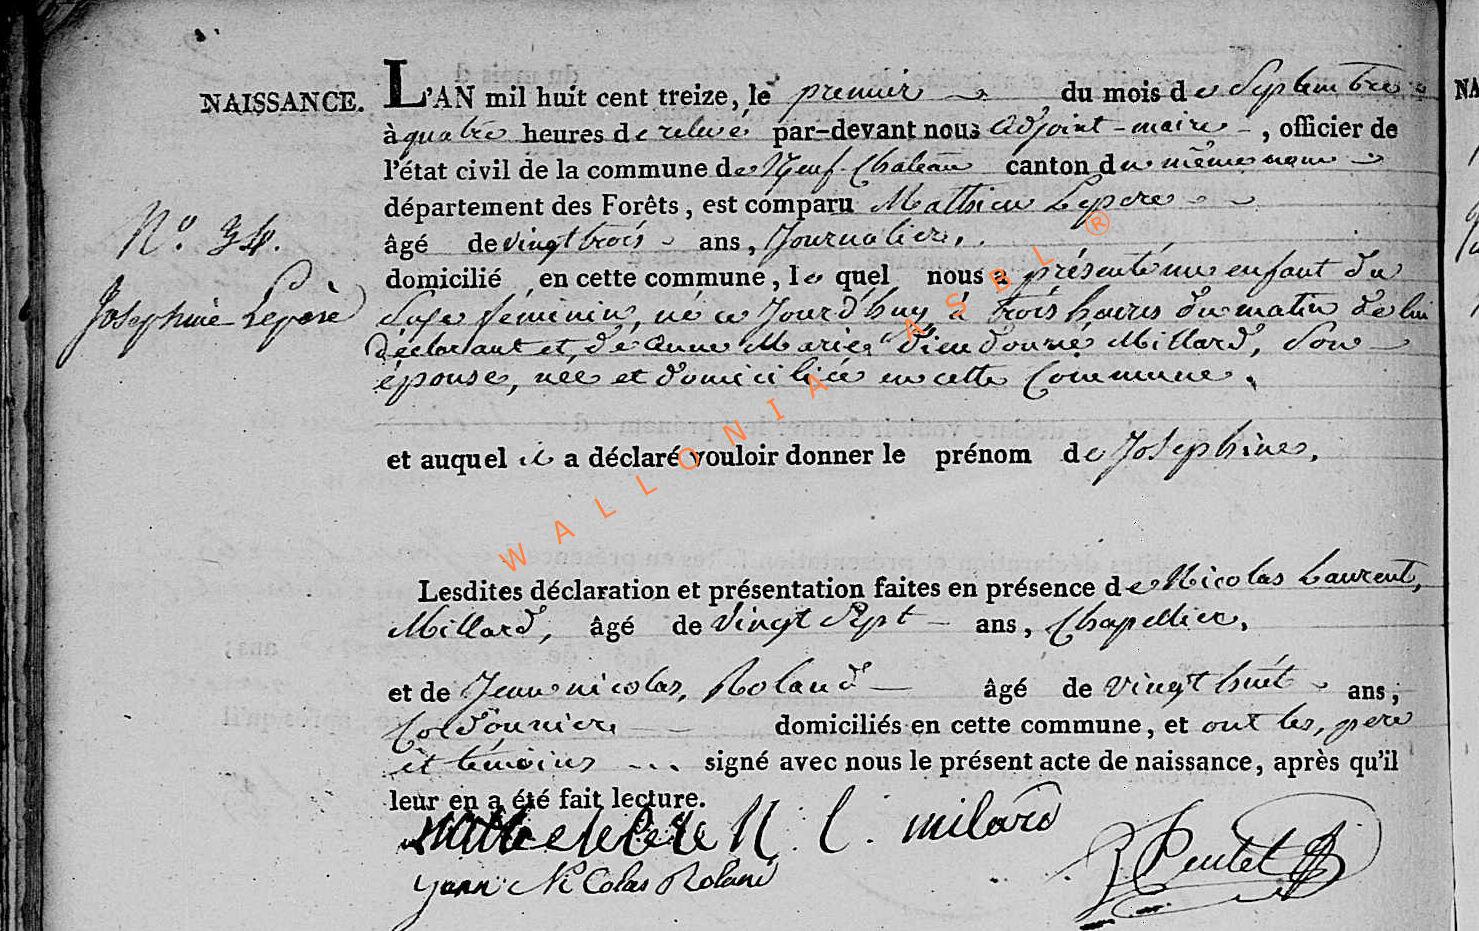 NAISSANCE.
L'AN mil huit cent treize, le premier du mois de Septembre
à quatre heures de relevé par-devant nous adjoint-maire, officier de
l'état civil de la commune de Neuf-Chateau canton du même nom
département des Forêts, est comparu Mathieu Lepere
âgé de vingt trois ans, Journalier,
domicilié en cette commune, le quel nous a présenté un enfant du
Sexe féminin, né ce Jourd'huy à trois heures du matin de lui
déclarant et de anne Marie Dieudonné Millard, Son
épouse, née et domiciliée en cette Commune.
et auquel il a déclaré vouloir donner le prénom de Josephine.
N.º 34.
Josephine Lepère
Lesdites déclaration et présentation faites en présence de Nicolas Laurent,
Millard, âgé de Vingt Sept ans, Chapellier,
et de Jean nicolas, Roland âgé de vingt huit ans,
Cordonnier domiciliés en cette commune, et ont les, pere
et témoins signé avec nous le présent acte de naissance, après qu'il
leur en a été fait lecture.
N. L. milard
Nicolas Roland
WALLONIA ASBL ®
NA